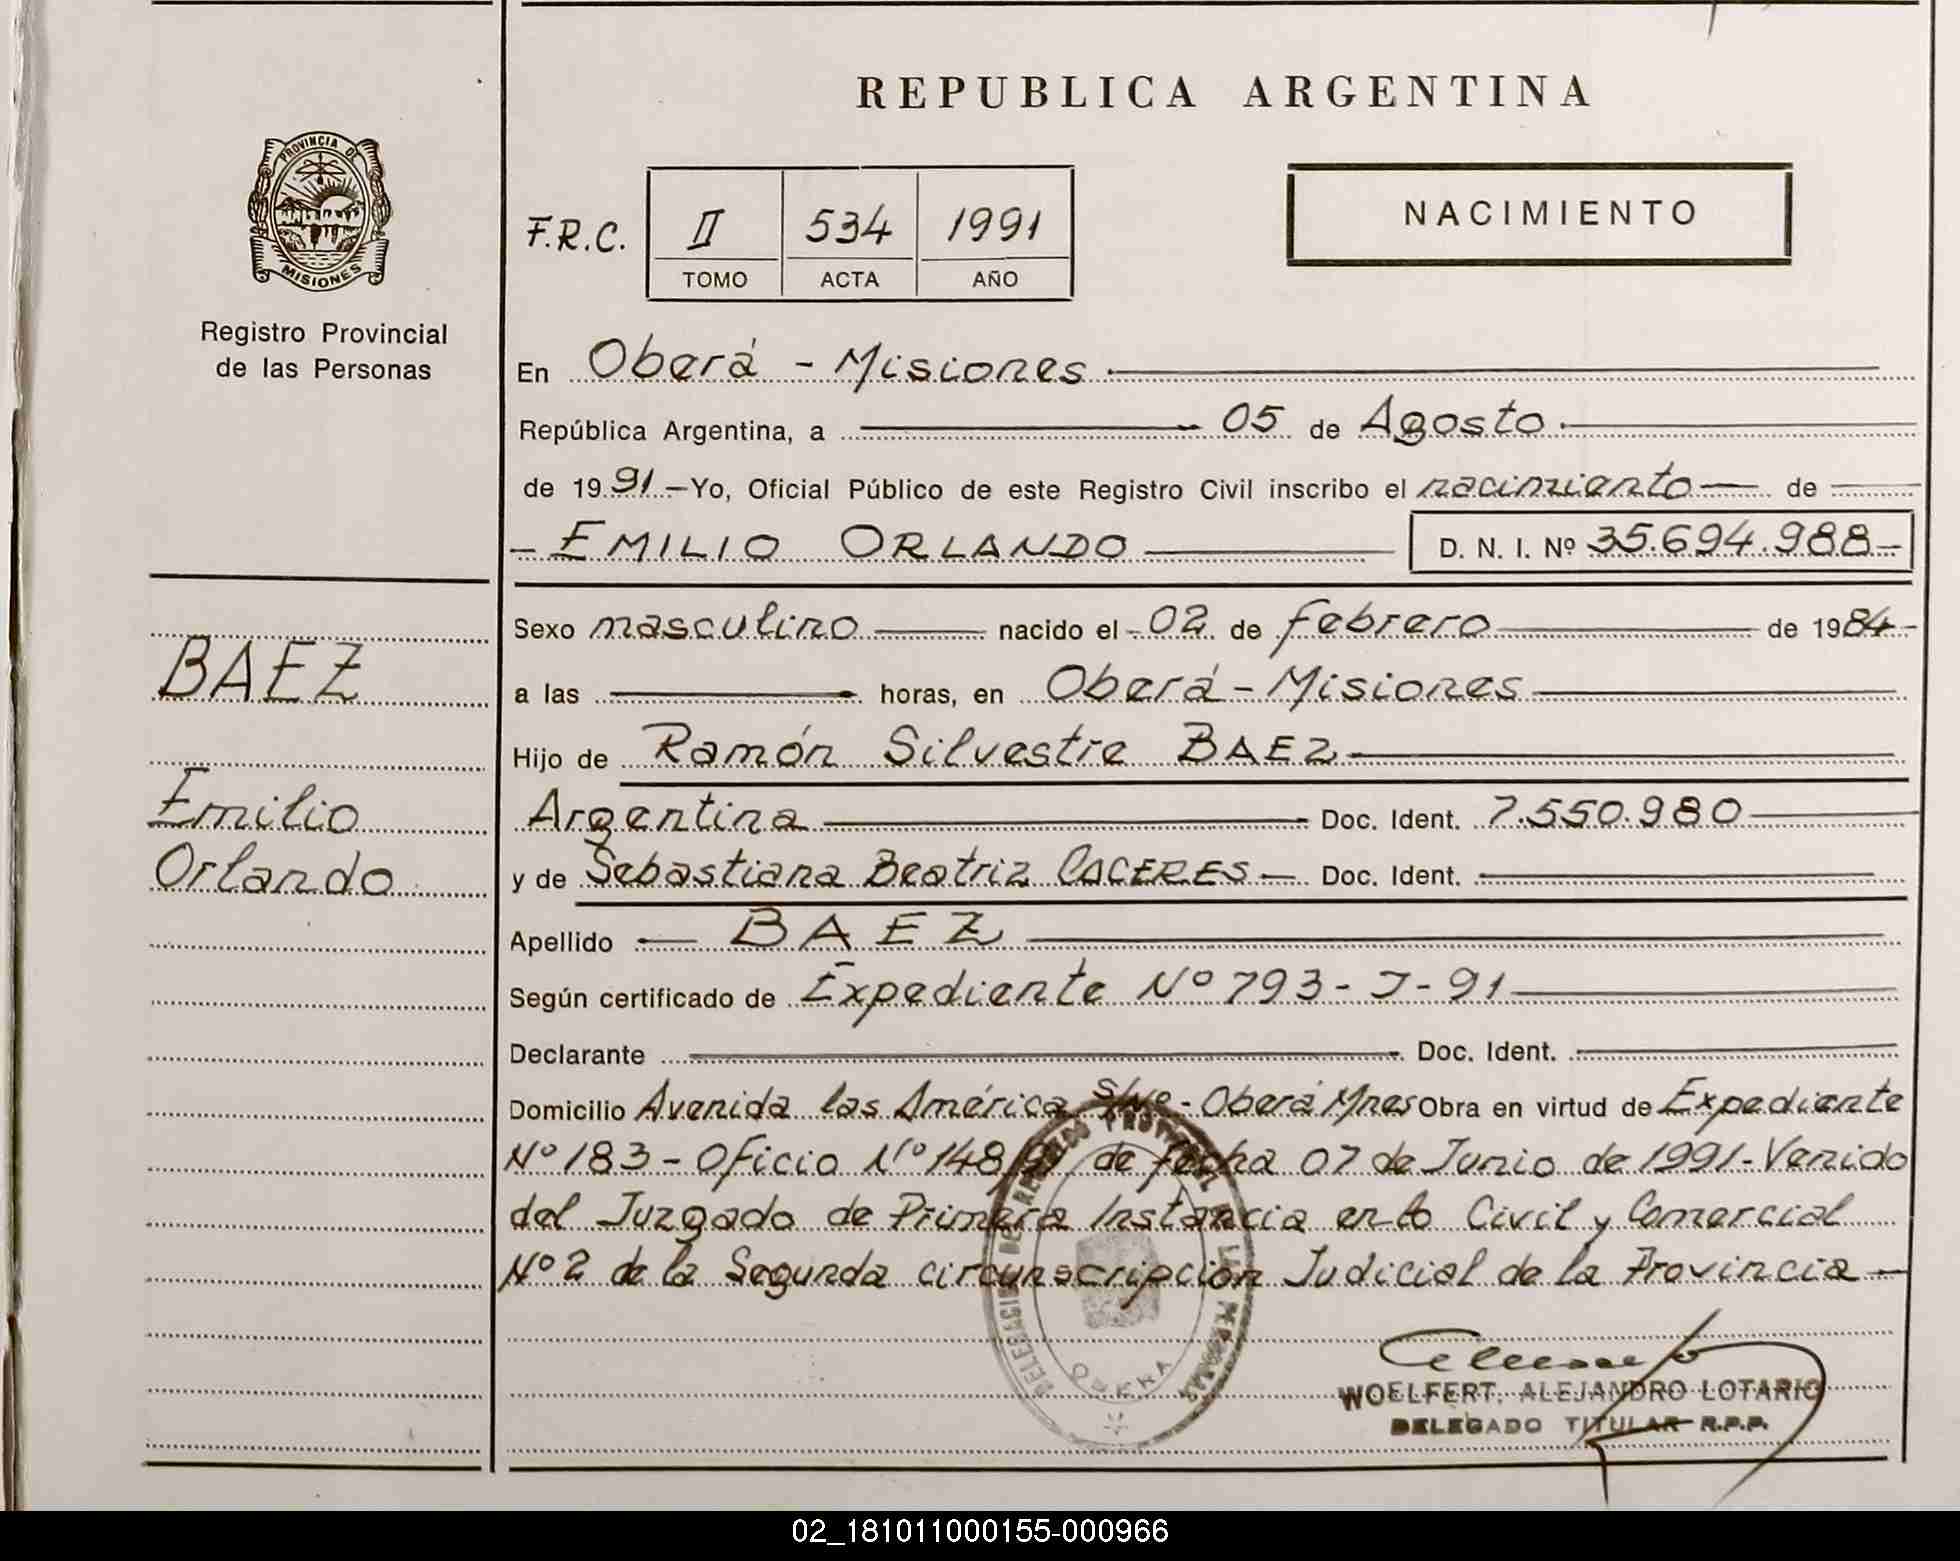 REPUBLICA ARGENTINA
PROVINCIA DE
MISIONES
Registro Provincial
de las Personas
F.R.C. II 534 1991
TOMO ACTA AÑO
NACIMIENTO
En Oberá - Misiones
República Argentina, a 05 de Agosto
de 1991 - Yo, Oficial Público de este Registro Civil inscribo el nacimiento de
- EMILIO ORLANDO D. N. I. Nº 35.694.988-
BAEZ
Emilio
Orlando
Sexo masculino nacido el 02 de febrero de 1984-
a las horas, en Oberá - Misiones
Hijo de Ramón Silvestre BAEZ
Argentina Doc. Ident. 7.550.980
y de Sebastiana Beatriz CACERES - Doc. Ident.
Apellido BAEZ
Según certificado de Expediente Nº 793-J-91
Declarante Doc. Ident.
Domicilio Avenida las América S/Nº - Oberá Mnes Obra en virtud de Expediente
Nº 183 - Oficio Nº 148/91 de fecha 07 de Junio de 1991 - Venido
del Juzgado de Primera Instancia en lo Civil y Comercial
Nº 2 de la Segunda circunscripción Judicial de la Provincia -
DELEGACION DEL REGISTRO PROVINCIAL DE LAS PERSONAS
OBERA
WOELFERT, ALEJANDRO LOTARIO
DELEGADO TITULAR R.P.P.
02_181011000155-000966